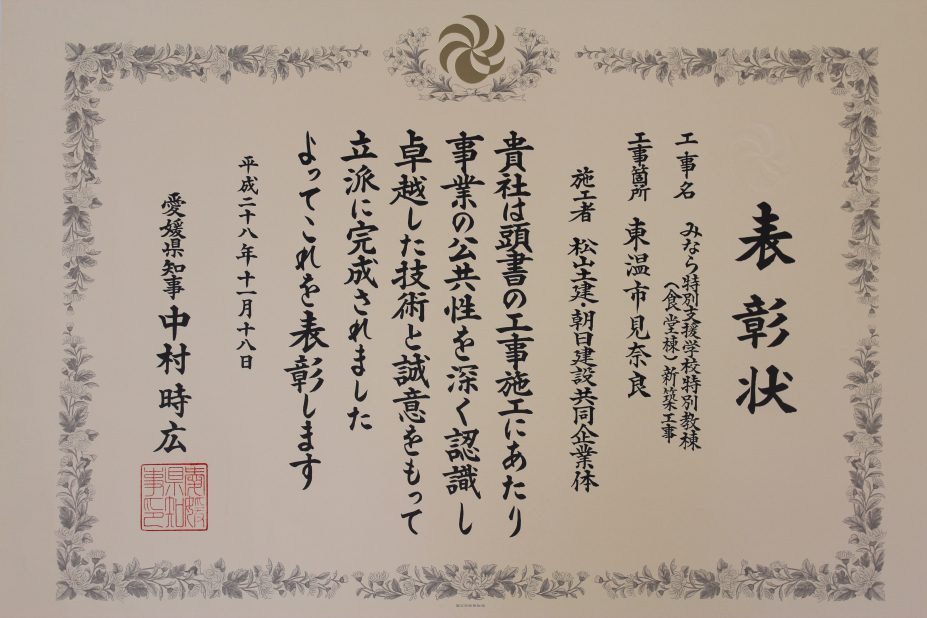 表彰状
工事名 みなら特別支援学校特別教棟
(食堂棟)新築工事
工事箇所 東温市見奈良
施工者 松山土建・朝日建設共同企業体
貴社は頭書の工事施工にあたり
事業の公共性を深く認識し
卓越した技術と誠意をもって
立派に完成されました
よってこれを表彰します
平成二十八年十一月十八日
愛媛県知事 中村時広
愛媛県知事印